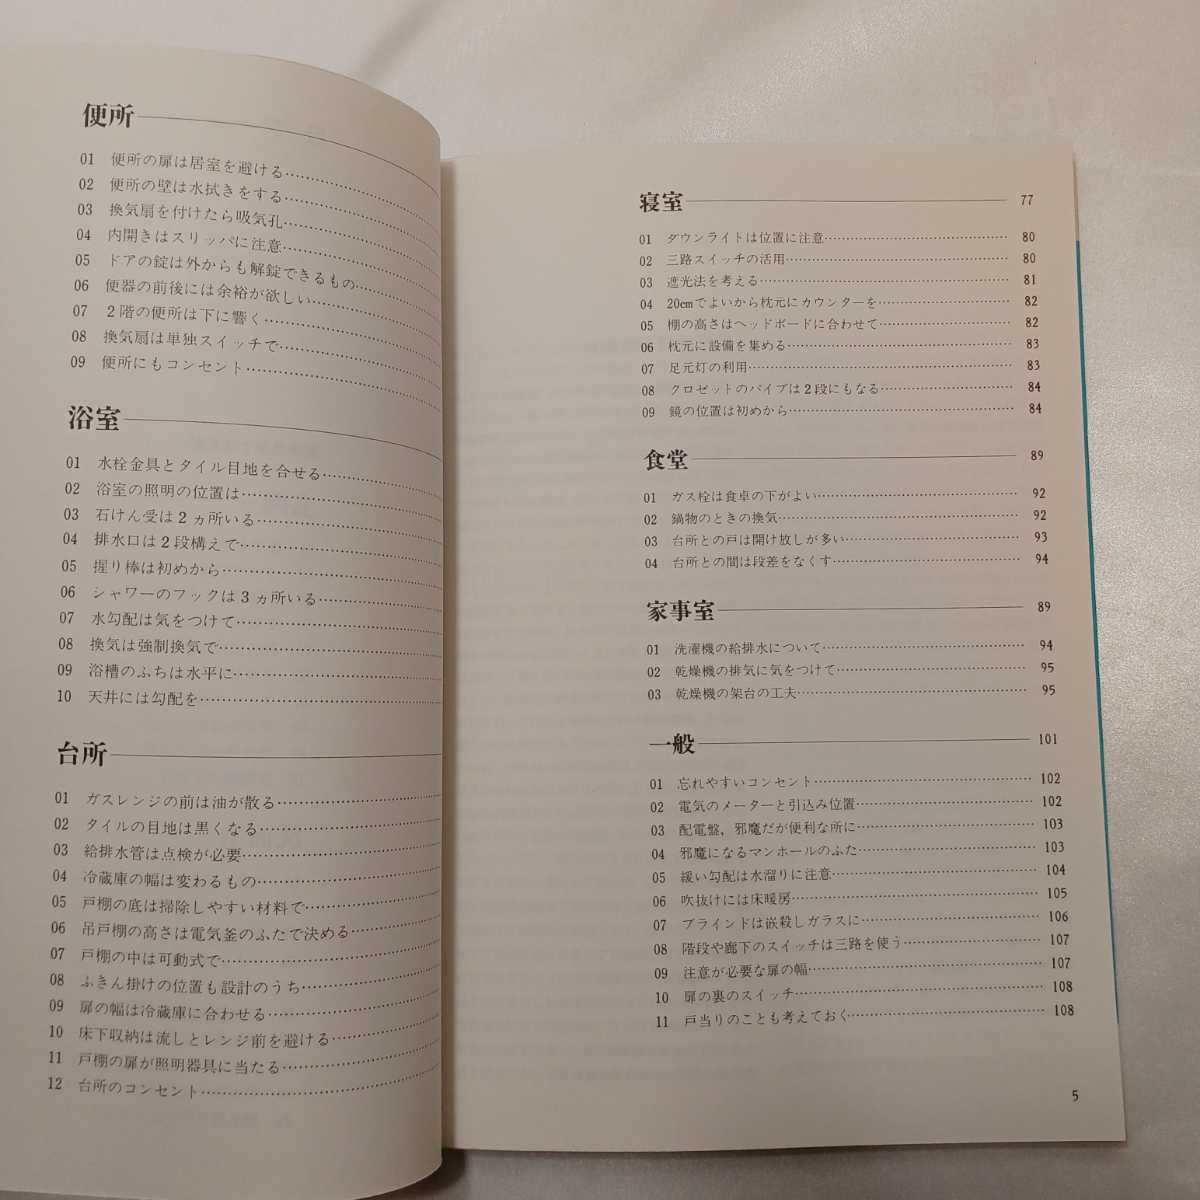 便所
01 便所の扉は居室を避ける
02 便所の壁は水拭きをする
03 換気扇を付けたら吸気孔
04 内開きはスリッパに注意
05 ドアの錠は外からも解錠できるもの
06 便器の前後には余裕が欲しい
07 2階の便所は下に響く
08 換気扇は単独スイッチで
09 便所にもコンセント
浴室
01 水栓金具とタイル目地を合せる
02 浴室の照明の位置は
03 石けん受は2ヵ所いる
04 排水口は2段構えで
05 握り棒は初めから
06 シャワーのフックは3ヵ所いる
07 水勾配は気をつけて
08 換気は強制換気で
09 浴槽のふちは水平に
10 天井には勾配を
台所
01 ガスレンジの前は油が散る
02 タイルの目地は黒くなる
03 給排水管は点検が必要
04 冷蔵庫の幅は変わるもの
05 戸棚の底は掃除しやすい材料で
06 吊戸棚の高さは電気釜のふたで決める
07 戸棚の中は可動式で
08 ふきん掛けの位置も設計のうち
09 扉の幅は冷蔵庫に合わせる
10 床下収納は流しとレンジ前を避ける
11 戸棚の扉が照明器具に当たる
12 台所のコンセント
寝室 77
01 ダウンライトは位置に注意 80
02 三路スイッチの活用 80
03 遮光法を考える 81
04 20cmでよいから枕元にカウンターを 82
05 棚の高さはヘッドボードに合わせて 82
06 枕元に設備を集める 83
07 足元灯の利用 83
08 クロゼットのパイプは2段にもなる 84
09 鏡の位置は初めから 84
食堂 89
01 ガス栓は食卓の下がよい 92
02 鍋物のときの換気 92
03 台所との戸は開け放しが多い 93
04 台所との間は段差をなくす 94
家事室 89
01 洗濯機の給排水について 94
02 乾燥機の排気に気をつけて 95
03 乾燥機の架台の工夫 95
一般 101
01 忘れやすいコンセント 102
02 電気のメーターと引込み位置 102
03 配電盤，邪魔だが便利な所に 103
04 邪魔になるマンホールのふた 103
05 緩い勾配は水溜りに注意 104
06 吹抜けには床暖房 105
07 ブラインドは嵌殺しガラスに 106
08 階段や廊下のスイッチは三路を使う 107
09 注意が必要な扉の幅 107
10 扉の裏のスイッチ 108
11 戸当りのことも考えておく 108
5